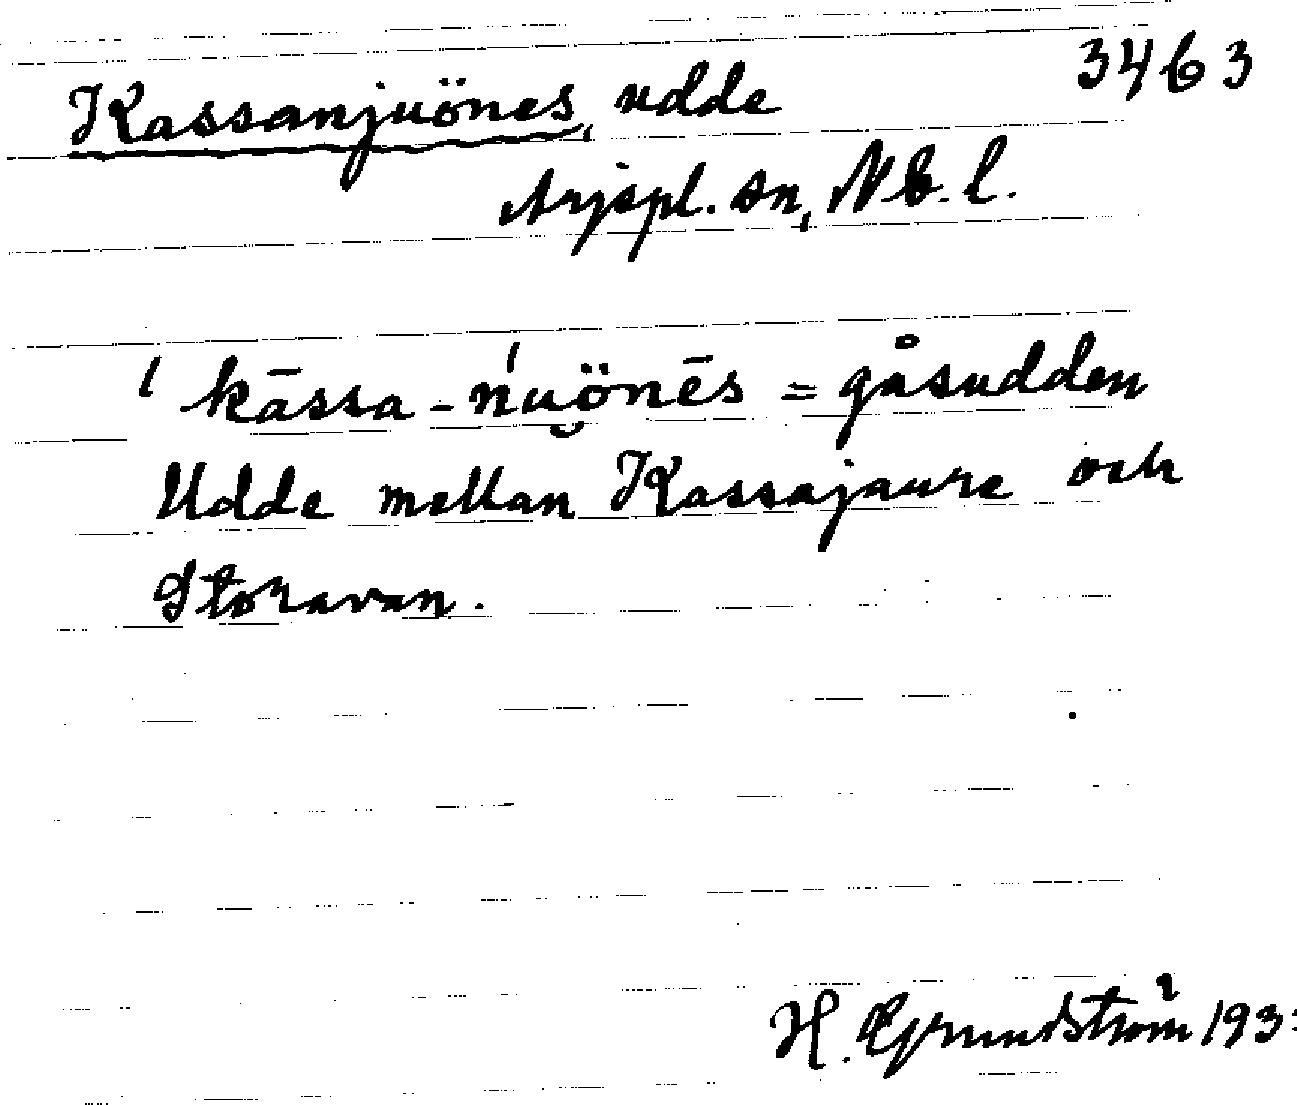 3463
Kassanjuönes, udde
Arjepl. sn, Nb. l.
ˈkāssa-ˈńuönēs = gåsudden
Udde mellan Kassajaure och
Storavan.
H. Grundström 193